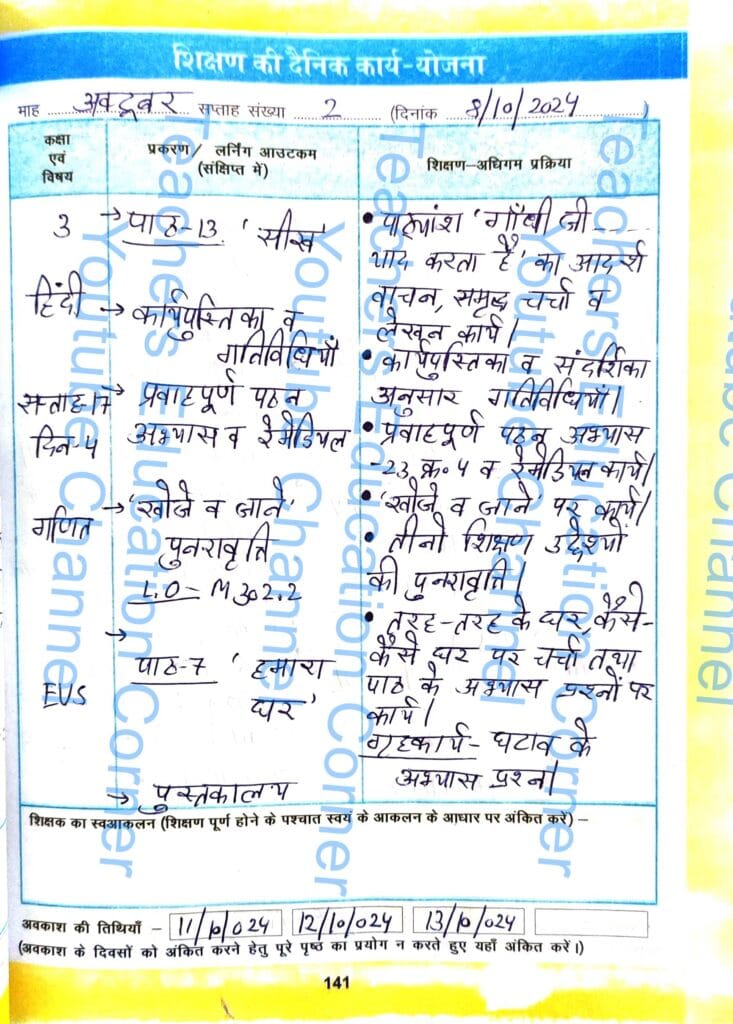 शिक्षण की दैनिक कार्य-योजना
माह अक्टूबर सप्ताह संख्या 2 (दिनांक 8/10/2024)
कक्षा एवं विषय
प्रकरण/ लर्निंग आउटकम (संक्षिप्त में)
शिक्षण-अधिगम प्रक्रिया
3
हिंदी
सप्ताह-17
दिन-4
गणित
EVS
→ पाठ-13 'सीख'
→ कार्यपुस्तिका व
गतिविधियाँ
→ प्रवाहपूर्ण पठन
अभ्यास व रेमेडियल
→ 'खोजे व जाने'
पुनरावृत्ति
L.O - M302.2
→
पाठ-7 'हमारा
घर'
→ पुस्तकालय
• पाठ्यांश 'गाँधी जी ----
याद करता है' का आदर्श
वाचन, समृद्ध चर्चा व
लेखन कार्य।
• कार्यपुस्तिका व संदर्शिका
अनुसार गतिविधियाँ।
• प्रवाहपूर्ण पठन अभ्यास
-23 क्र. 4 व रेमेडियल कार्य।
• 'खोजे व जाने' पर कार्य।
• तीनो शिक्षण उद्देश्यों
की पुनरावृत्ति।
• तरह-तरह के घर, कैसे-
कैसे घर पर चर्चा तथा
पाठ के अभ्यास प्रश्नों पर
कार्य।
गृहकार्य- घटाव के
अभ्यास प्रश्न।
शिक्षक का स्वआकलन (शिक्षण पूर्ण होने के पश्चात स्वयं के आकलन के आधार पर अंकित करें) –
अवकाश की तिथियाँ – 11/10/024 12/10/024 13/10/024
(अवकाश के दिवसों को अंकित करने हेतु पूरे पृष्ठ का प्रयोग न करते हुए यहाँ अंकित करें।)
141
Teachers Education Corner
Youtube Channel
Teachers Education Corner
Youtube Channel
Teachers Education Corner
Youtube Channel